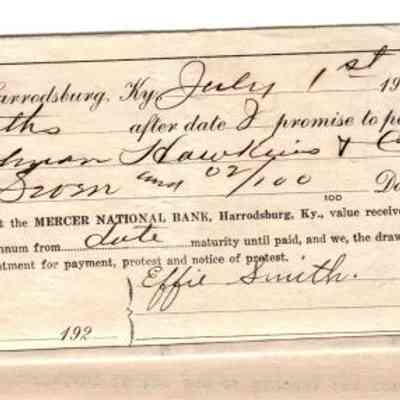 arrodsburg, Ky. July 1st 19
ths after date I promise to pa
man Hawkins & C
Seven and 02/100 Do
100
t the MERCER NATIONAL BANK, Harrodsburg, Ky., value receive
nnum from date maturity until paid, and we, the draw
ntment for payment, protest and notice of protest.
Effie Smith.
192